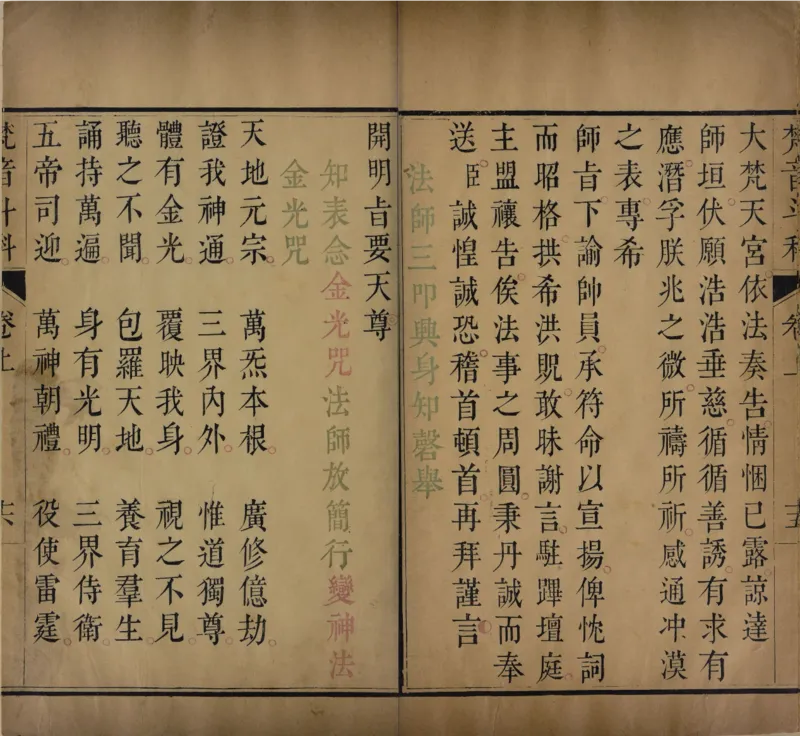 梵音斗科 卷上 十五
大梵天宮依法奏告情悃已露諒達
師垣伏願浩浩垂慈循循善誘有求有
應潛孚朕兆之微所禱所祈感通冲漠
之表專希
師旨下諭帥員承符命以宣揚俾忱詞
而昭格拱希洪貺敢昧謝言駐蹕壇庭
主盟禳告俟法事之周圓秉丹誠而奉
送臣誠惶誠恐稽首頓首再拜謹言
法師三叩興身知磬舉
開明旨要天尊
知表念金光咒法師放簡行變神法
金光咒
天地元宗 萬炁本根 廣修億劫
證我神通 三界內外 惟道獨尊
體有金光 覆映我身 視之不見
聽之不聞 包羅天地 養育羣生
誦持萬遍 身有光明 三界侍衛
五帝司迎 萬神朝禮 役使雷霆
梵音斗科 卷上 十六